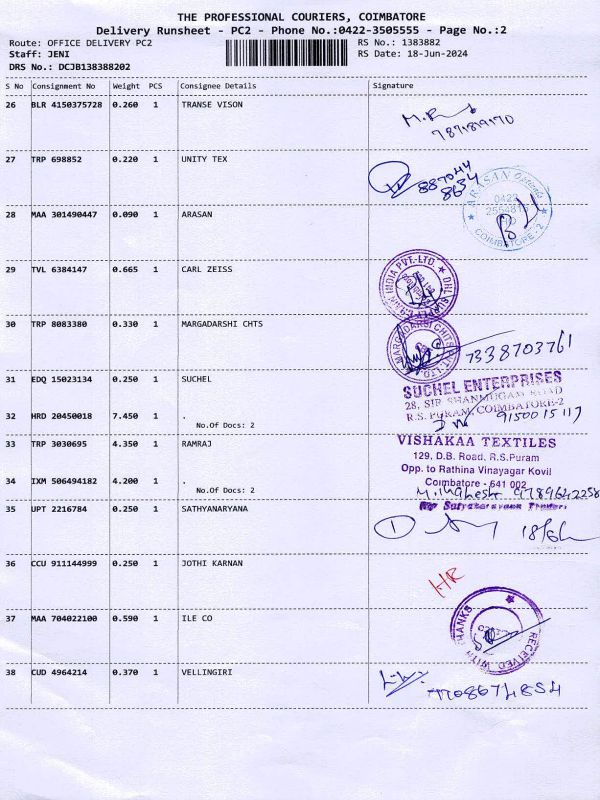 THE PROFESSIONAL COURIERS, COIMBATORE
Delivery Runsheet - PC2 - Phone No.:0422-3505555 - Page No.:2
Route: OFFICE DELIVERY PC2 RS No.: 1383882
Staff: JENI RS Date: 18-Jun-2024
DRS No.: DCJB138388202
S No Consignment No Weight PCS Consignee Details Signature
26 BLR 4150375728 0.260 1 TRANSE VISON
27 TRP 698852 0.220 1 UNITY TEX
887044
8634
ARASAN
0422
COIMBATORE-2
28 MAA 301490447 0.090 1 ARASAN
29 TVL 6384147 0.665 1 CARL ZEISS
INDIA PVT. LTD
30 TRP 8083380 0.330 1 MARGADARSHI CHTS
MARGADARSI CHITS
7338703761
31 EDQ 15023134 0.250 1 SUCHEL
SUCHEL ENTERPRISES
28, SIR SHANMUGAM ROAD
R.S. PURAM, COIMBATORE-2
32 HRD 20450018 7.450 1 .
No.Of Docs: 2
9150015117
33 TRP 3030695 4.350 1 RAMRAJ
VISHAKAA TEXTILES
129, D.B. Road, R.S.Puram
Opp. to Rathina Vinayagar Kovil
Coimbatore - 641 002
34 IXM 506494182 4.200 1 .
No.Of Docs: 2
9789642258
35 UPT 2216784 0.250 1 SATHYANARYANA
1
18/6/
36 CCU 911144999 0.250 1 JOTHI KARNAN
HR
37 MAA 704022100 0.590 1 ILE CO
RECEIVED WITH THANKS
38 CUD 4964214 0.370 1 VELLINGIRI
7708674854